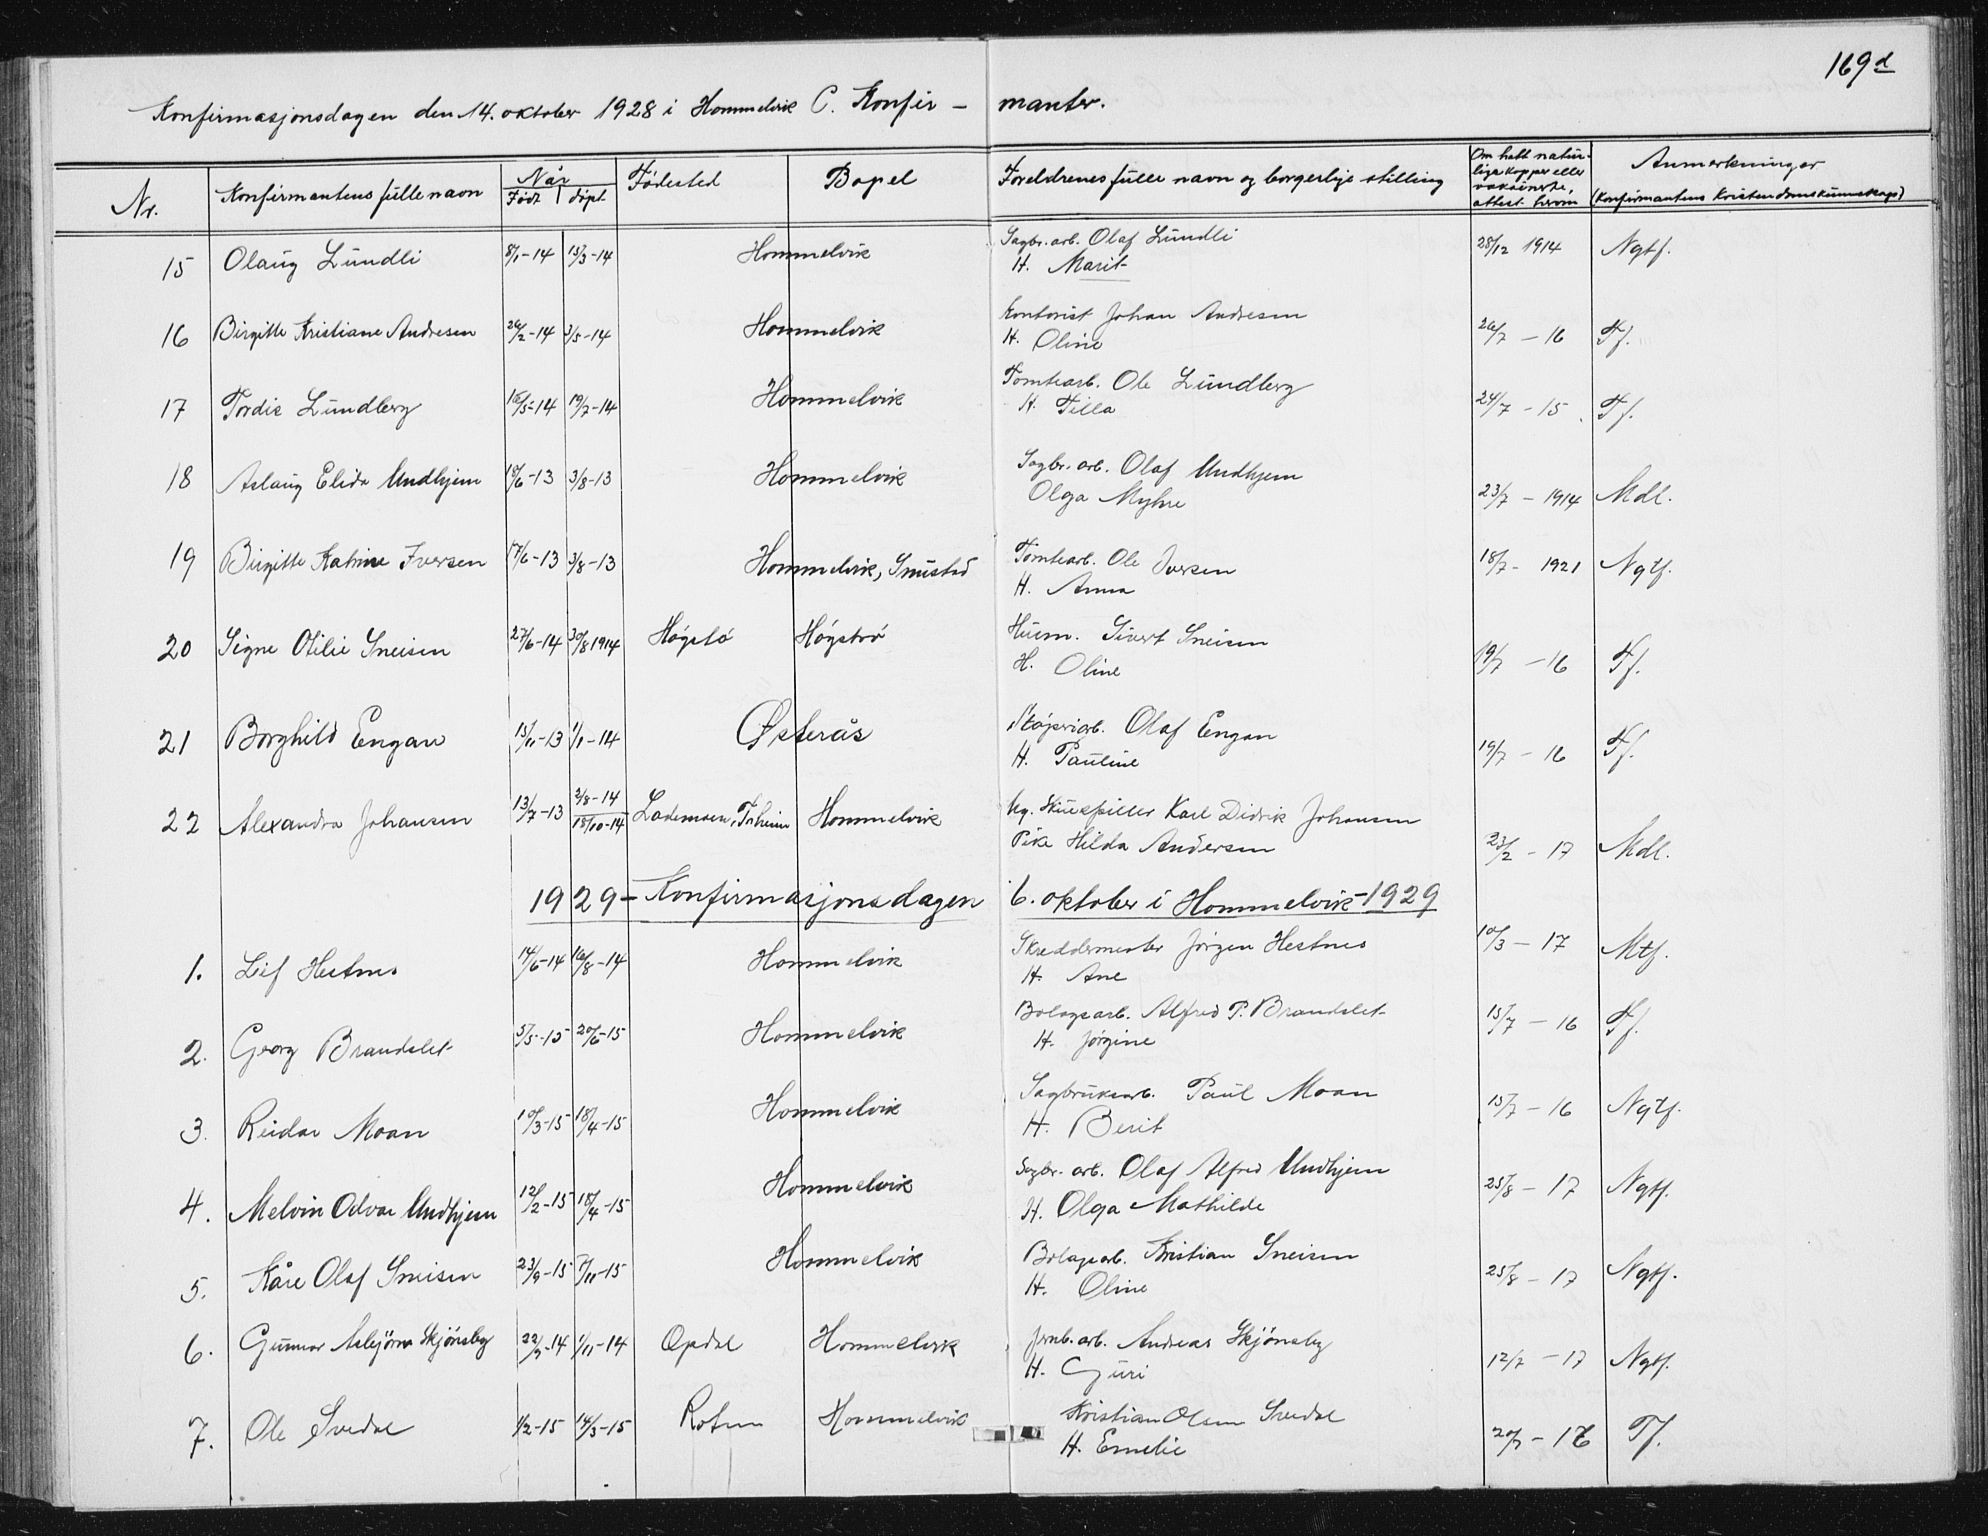 169d
Konfirmasjonsdagen den 14. oktober 1928 i Hommelvik C. Konfir - manter.
Nr. Konfirmantens fulle navn Når Født døpt Fødested Bopel Foreldrenes fulle navn og borgerlige stilling Om hatt naturlige kopper eller vaksinerte, attest herom Anmerkninger (Konfirmantens Kristendomskunnskap)
15 Olaug Lundli 8/1-14 15/3-14 Hommelvik Sagbr.arb. Olaf Lundli 28/12 1914 Ngtf.
H. Marit
16 Birgitte Kristiane Andresen 26/2-14 3/5-14 Hommelvik Kontorist Johan Andresen 26/7 - 16 Tf.
H. Oline
17 Tordis Lundberg 16/5-14 19/7-14 Hommelvik Tomtearb. Ole Lundberg 24/7 - 15 Tf.
H. Tilla
18 Aslaug Elida Mudhjem 18/6-13 3/8-13 Hommelvik Sagbr. arb. Olaf Mudhjem 23/7 - 1914 Mdl.
Olga Myhre
19 Birgitte Katrine Iversen 17/6-13 3/8-13 Hommelvik, Smustad Tomtearb. Ole Iversen 18/7- 1921 Ngtf.
H. Anna
20 Signe Otilie Sneisen 27/6-14 30/8 1914 Høgstø Høgstrø Husm. Sivert Sneisen 19/7 - 16 Tf.
H. Oline
21 Borghild Engan 15/11-13 1/1-14 Østerås Støperiarb. Olaf Engan 19/7 - 16 Tf.
H. Pauline
22 Alexandra Johansen 13/7-13 2/8-14 18/10-14 Lademoen, Tr.heim Hommelvik Ug. Skuespiller Karl Didrik Johansen 23/2 - 17 Mdl.
Pike Hilda Andersen
1929 - Konfirmasjonsdagen 6. oktober i Hommelvik - 1929
1. Leif Hestnes 14/6-14 16/8-14 Hommelvik Skreddermester Jørgen Hestnes 10/3 - 17 Mtf.
H. Ane
2. Georg Brandslet 5/5-15 20/6-15 Hommelvik Bolagsarb. Alfred P. Brandslet 15/7 - 16 Tf.
H. Jørgine
3. Reidar Moan 10/3-15 18/4-15 Hommelvik Sagbruksarb. Paul Moan 15/7 - 16 Ngtf.
H. Berit
4. Melvin Odvar Mudhjem 12/2-15 18/4-15 Hommelvik Sagbr. arb. Olaf Alfred Mudhjem 25/8 - 17 Ngtf.
H. Olga Mathilde
5. Kåre Olaf Sneisen 23/9-15 7/11-15 Hommelvik Bolagsarb. Kristian Sneisen 25/8 - 17 Ngtf.
H. Oline
6. Gunnar Asbjørn Skjønsby 22/9-14 1/11-14 Opdal Hommelvik Jernb. arb. Andreas Skjønsby 12/7 - 17 Ngtf.
H. Guri
7. Ole Svedal 1/2-15 14/3-15 Hommelvik Kristian Olsen Svedal 20/7 - 16 Tf.
H. Emelie